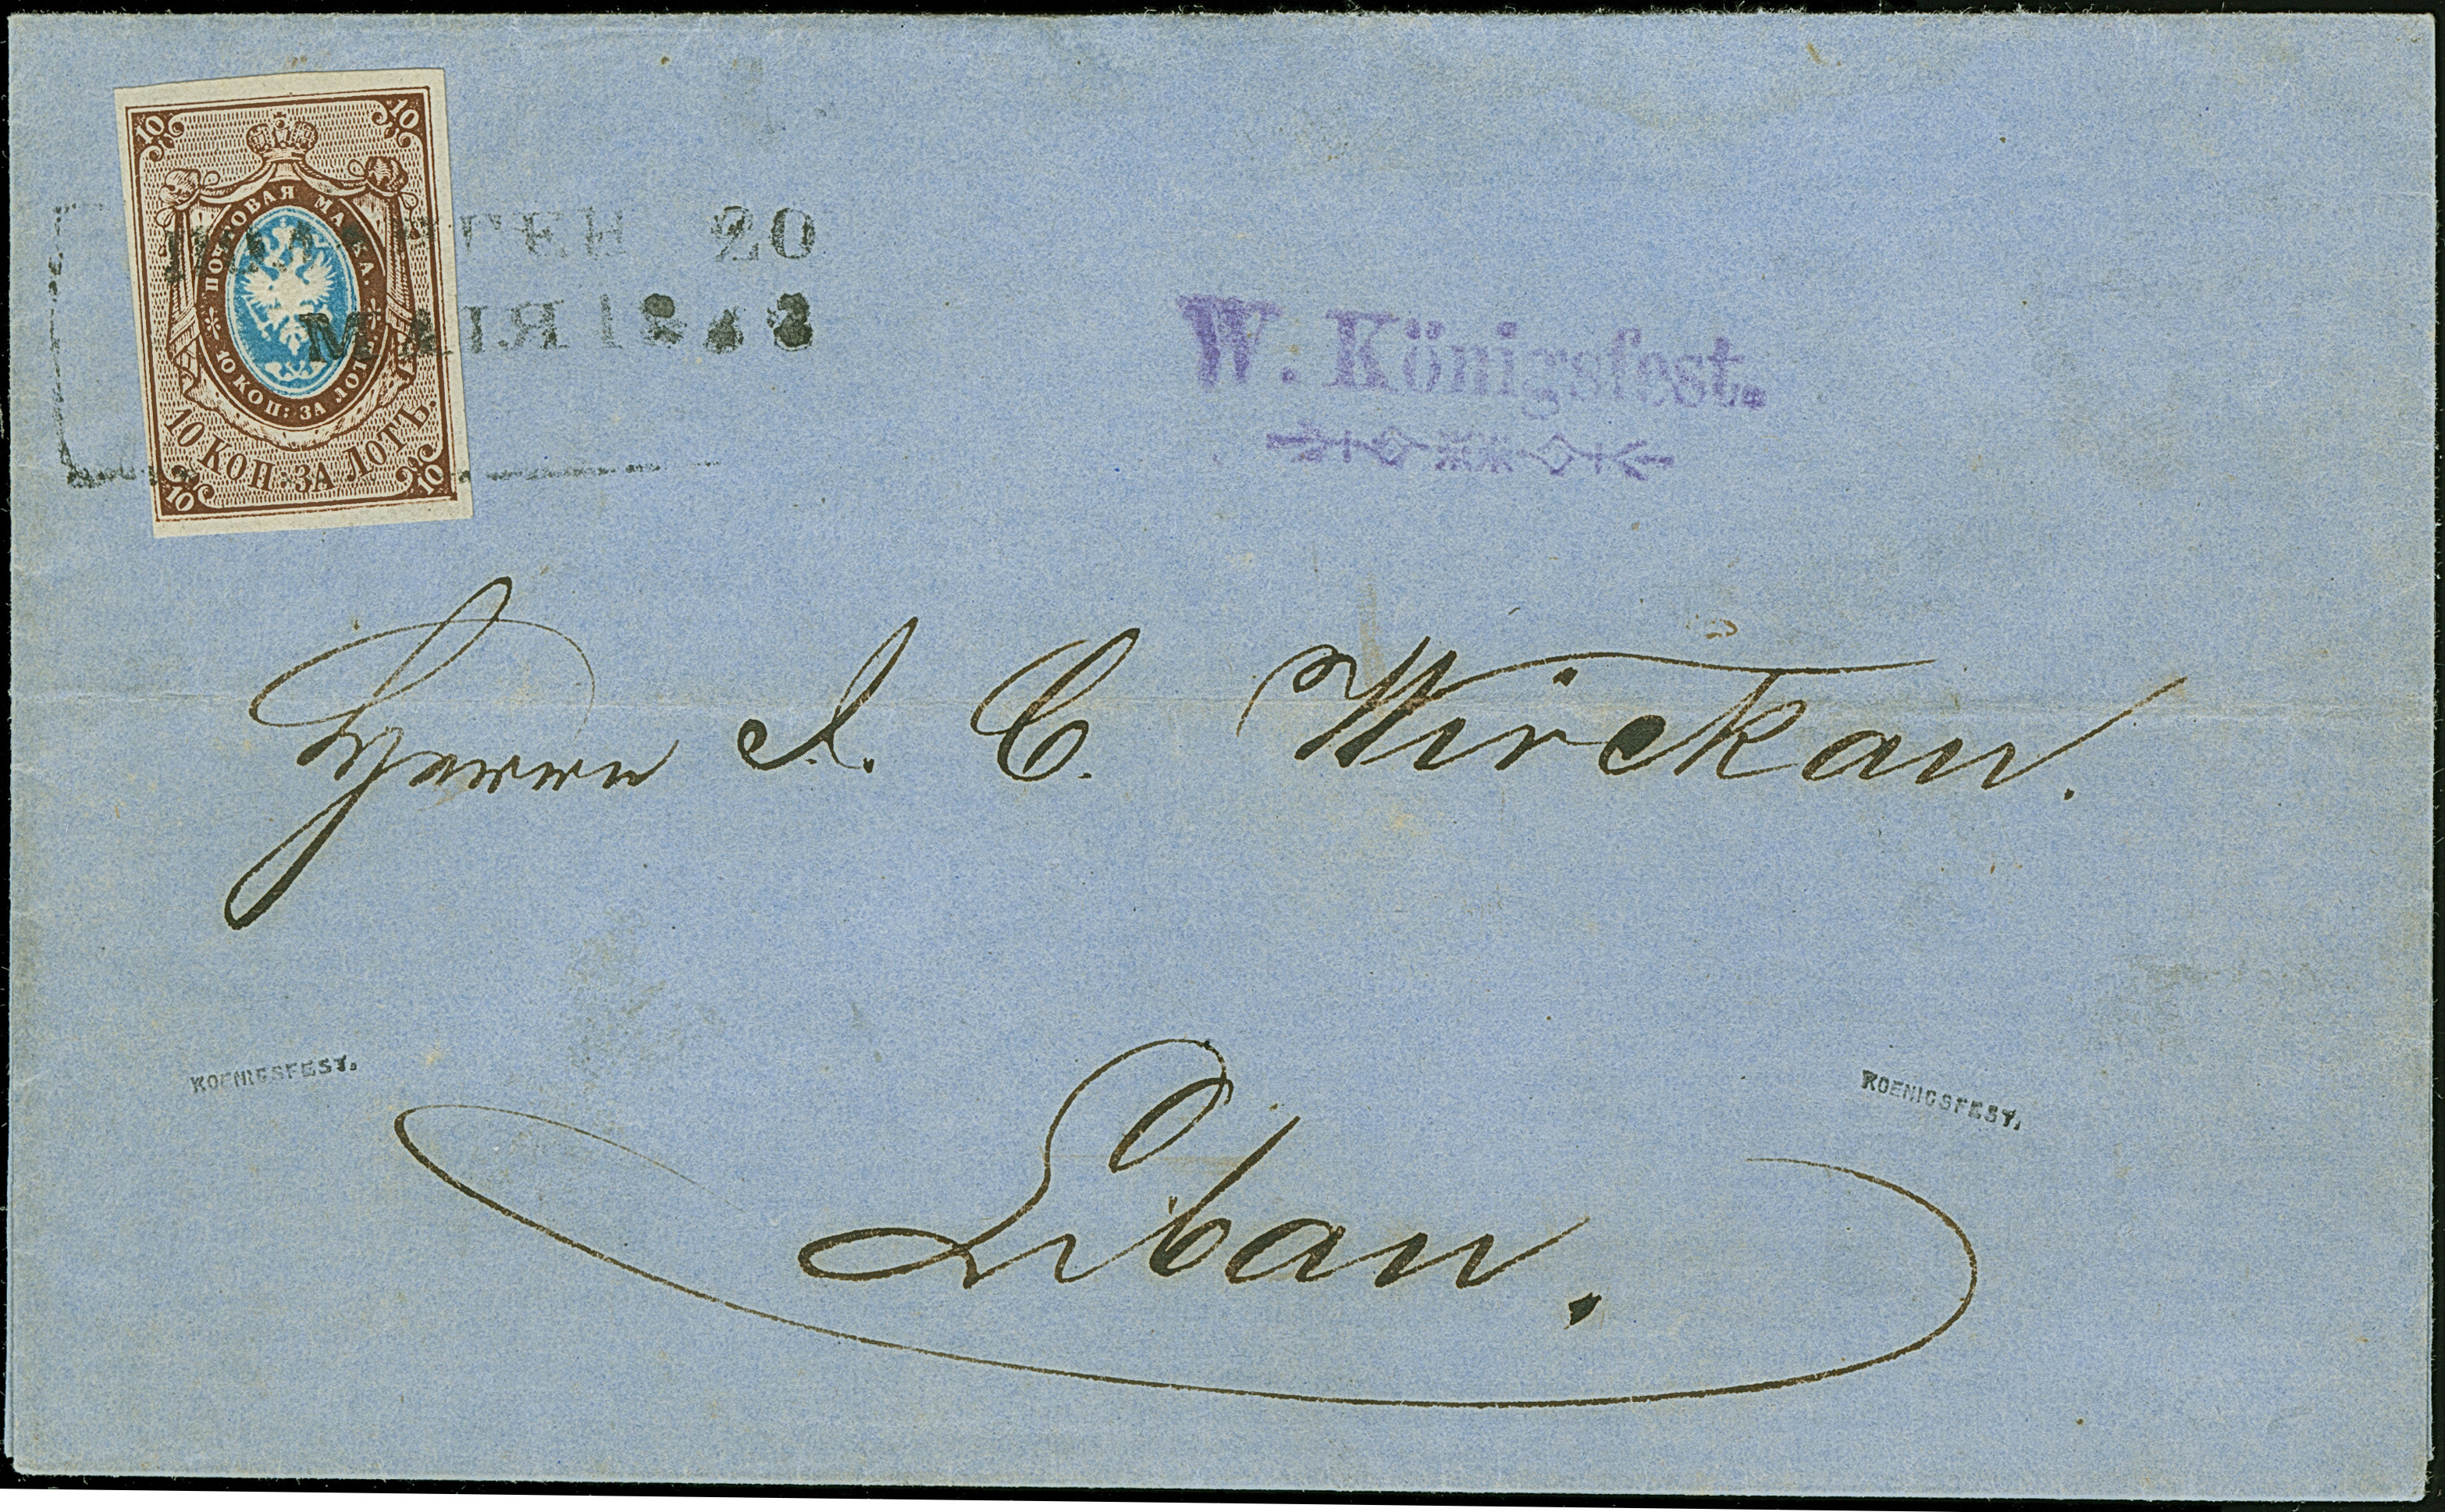 10 10
ПОЧТОВАЯ МАРКА.
10 КОП: ЗА ЛОТЪ
10 КОП: ЗА ЛОТЪ.
10 10
20
МАІЯ
W. Königsfest.
Herrn J. C. Wirckau.
KOENIGSFEST.
KOENIGSFEST.
Libau.